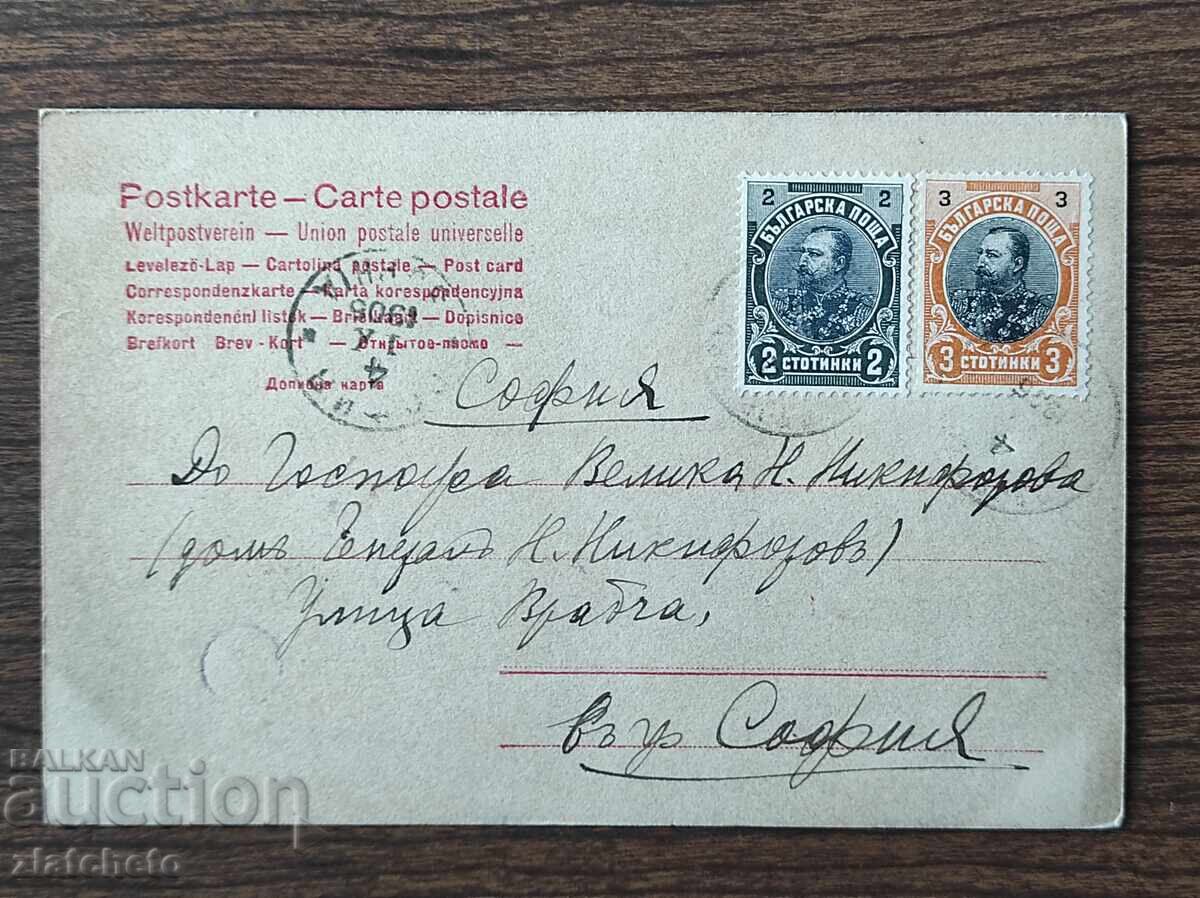 Postkarte – Carte postale
Weltpostverein — Union postale universelle
Levelező-Lap — Cartolina postale — Post card
Correspondenzkarte — Karta korespondencyjna
Korespondenční listek — Briefkaart — Dopisnice
Brefkort Brev-Kort — Открытое-письмо —
Дописна карта
1905
2 2
БЪЛГАРСКА ПОЩА
2 СТОТИНКИ 2
3 3
БЪЛГАРСКА ПОЩА
3 СТОТИНКИ 3
София
До Госпожа Велика Н. Никифорова
(домъ Генералъ Н. Никифоровъ)
Улица Врабча,
въ София
BALKAN
auction
zlatcheto